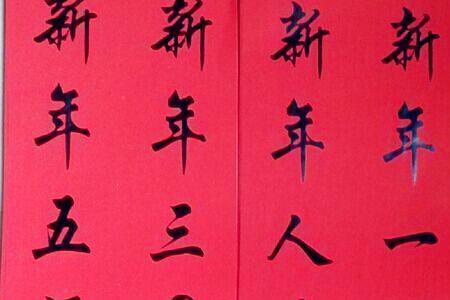 新年一
新年人
新年三
新年五